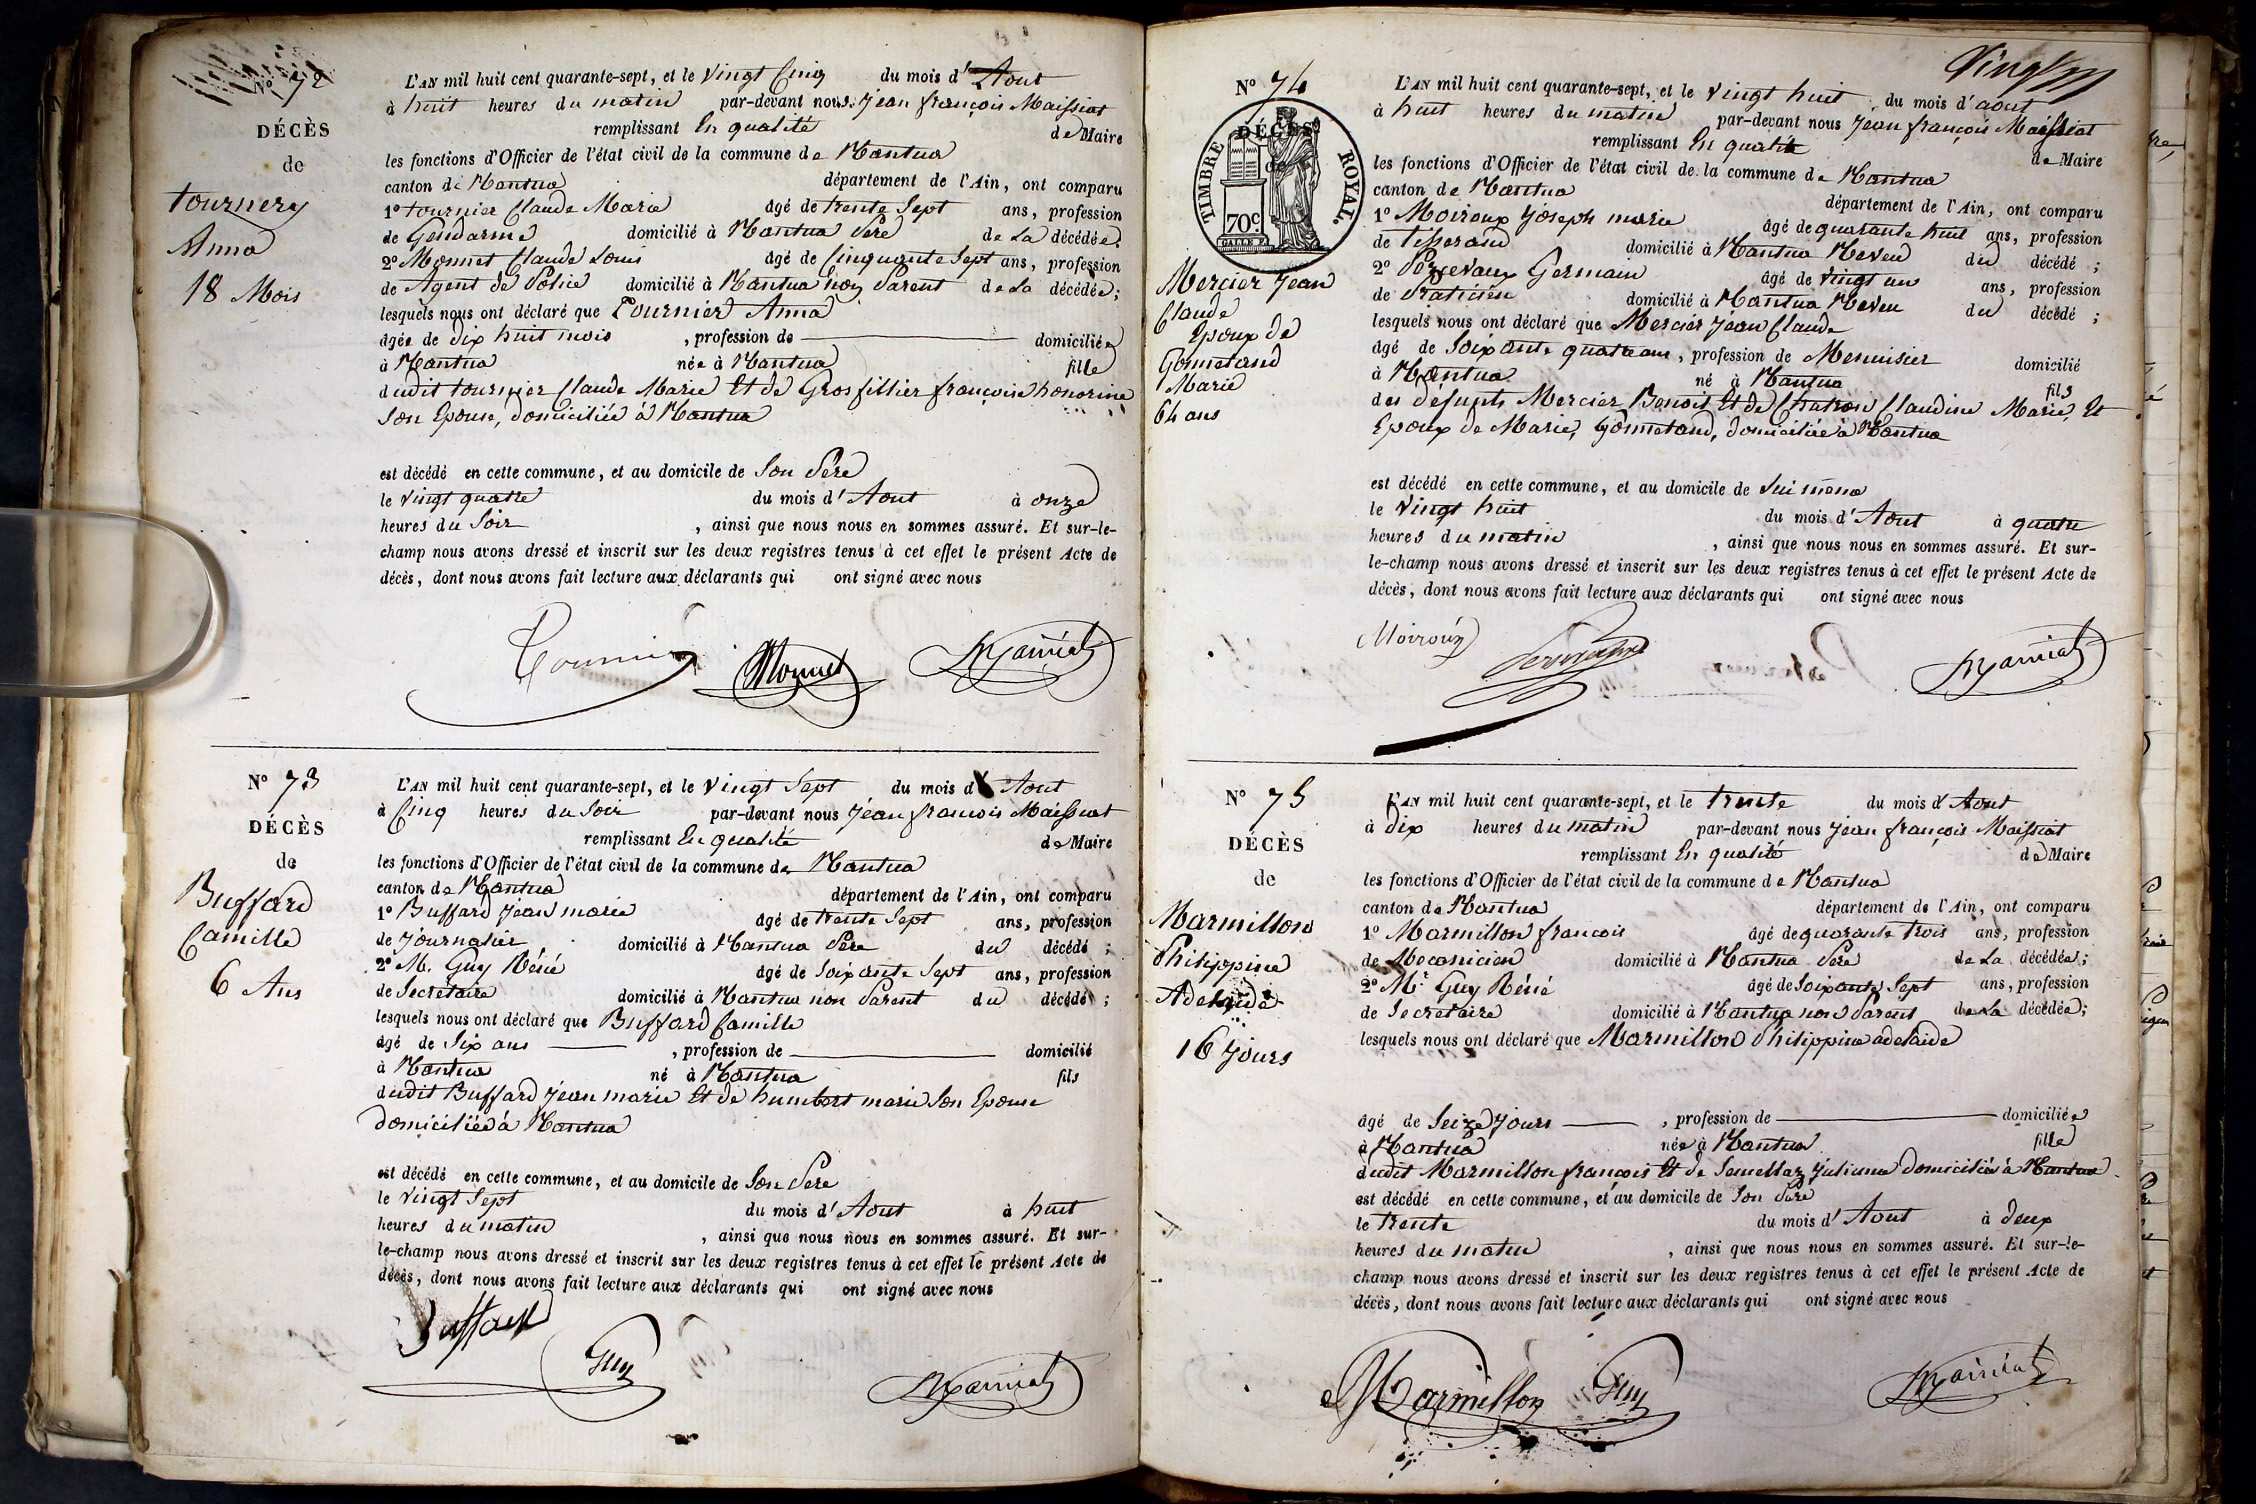 N° 72
DÉCÈS
de
tournery
Anna
18 Mois
L'AN mil huit cent quarante-sept, et le vingt Cinq du mois d'Aout
à huit heures du matin par-devant nous Jean françois Maissiat
remplissant En qualité de Maire
les fonctions d'Officier de l'état civil de la commune de Nantua
canton de Nantua département de l'Ain, ont comparu
1° tournier Claude Marie âgé de trente Sept ans, profession
de Gendarme domicilié à Nantua Père de La décédée;
2° Monnet Claude Louis âgé de Cinquante Sept ans, profession
de Agent de Police domicilié à Nantua Non Parent de La décédée;
lesquels nous ont déclaré que Tournier Anna
âgée de dix huit mois, profession de domiciliée
à Nantua née à Nantua fille
dudit tournier Claude Marie Et de Grosfillier françoise honorine
Son Epouse, domiciliée à Nantua
est décédé en cette commune, et au domicile de Son Père
le vingt quatre du mois d'Aout à onze
heures du Soir, ainsi que nous nous en sommes assuré. Et sur-le-
champ nous avons dressé et inscrit sur les deux registres tenus à cet effet le présent Acte de
décès, dont nous avons fait lecture aux déclarants qui ont signé avec nous
Tournier Monnet Maissiat
N° 73
DÉCÈS
de
Buffard
Camille
6 Ans
L'AN mil huit cent quarante-sept, et le vingt Sept du mois d'Aout
à Cinq heures du Soir par-devant nous Jean francois Maissiat
remplissant En qualité de Maire
les fonctions d'Officier de l'état civil de la commune de Nantua
canton de Nantua département de l'Ain, ont comparu
1° Buffard Jean marie âgé de trente Sept ans, profession
de Journalier domicilié à Nantua Père du décédé;
2° M. Guy Réné âgé de Soixante Sept ans, profession
de Secretaire domicilié à Nantua non Parent du décédé;
lesquels nous ont déclaré que Buffard Camille
âgé de Six ans, profession de domicilié
à Nantua né à Nantua fils
dudit Buffard Jean marie Et de humbert marie Son Epouse
domiciliée à Nantua
est décédé en cette commune, et au domicile de Son Père
le vingt Sept du mois d'Aout à huit
heures du matin, ainsi que nous nous en sommes assuré. Et sur-
le-champ nous avons dressé et inscrit sur les deux registres tenus à cet effet le présent Acte de
décès, dont nous avons fait lecture aux déclarants qui ont signé avec nous
Buffard Guy Maissiat
N° 74
DÉCÈS
de
TIMBRE ROYAL.
70c
Mercier Jean
Claude
Epoux de
Gonnetand
Marie
64 ans
L'AN mil huit cent quarante-sept, et le vingt huit du mois d'aout
à huit heures du matin par-devant nous Jean françois Maissiat
remplissant En qualité de Maire
les fonctions d'Officier de l'état civil de la commune de Nantua
canton de Nantua département de l'Ain, ont comparu
1° Moiroux Joseph marie âgé de quarante huit ans, profession
de Tisserand domicilié à Nantua Neveu du décédé;
2° Germain âgé de vingt un ans, profession
de Praticien domicilié à Nantua Neveu du décédé;
lesquels nous ont déclaré que Mercier Jean Claude
âgé de Soixante quatre ans, profession de Menuisier domicilié
à Nantua né à Nantua fils
des défunts Mercier Benoit Et de Chatron Claudine Marie, Et
Epoux de Marie, Gonnetand, domiciliée à Nantua
est décédé en cette commune, et au domicile de Lui même
le vingt huit du mois d'Aout à quatre
heures du matin, ainsi que nous nous en sommes assuré. Et sur-
le-champ nous avons dressé et inscrit sur les deux registres tenus à cet effet le présent Acte de
décès, dont nous avons fait lecture aux déclarants qui ont signé avec nous
Moiroux Maissiat
N° 75
DÉCÈS
de
Marmillon
Philippine
Adelaïde
16 Jours
L'AN mil huit cent quarante-sept, et le trente du mois d'Aout
à dix heures du matin par-devant nous Jean françois Maissiat
remplissant En qualité de Maire
les fonctions d'Officier de l'état civil de la commune de Nantua
canton de Nantua département de l'Ain, ont comparu
1° Marmillon francois âgé de quarante trois ans, profession
de Mecanicien domicilié à Nantua Père de La décédée;
2° Mr. Guy Réné âgé de Soixante Sept ans, profession
de Secretaire domicilié à Nantua non Parent de La décédée;
lesquels nous ont déclaré que Marmillon Philippine adelaide
âgé de Seize Jours, profession de domiciliée
à Nantua née à Nantua fille
dudit Marmillon francois Et de Juliene domiciliée à Nantua
est décédé en cette commune, et au domicile de Son Père
le trente du mois d'Aout à deux
heures du matin, ainsi que nous nous en sommes assuré. Et sur-le-
champ nous avons dressé et inscrit sur les deux registres tenus à cet effet le présent Acte de
décès, dont nous avons fait lecture aux déclarants qui ont signé avec nous
Marmillon Guy Maissiat